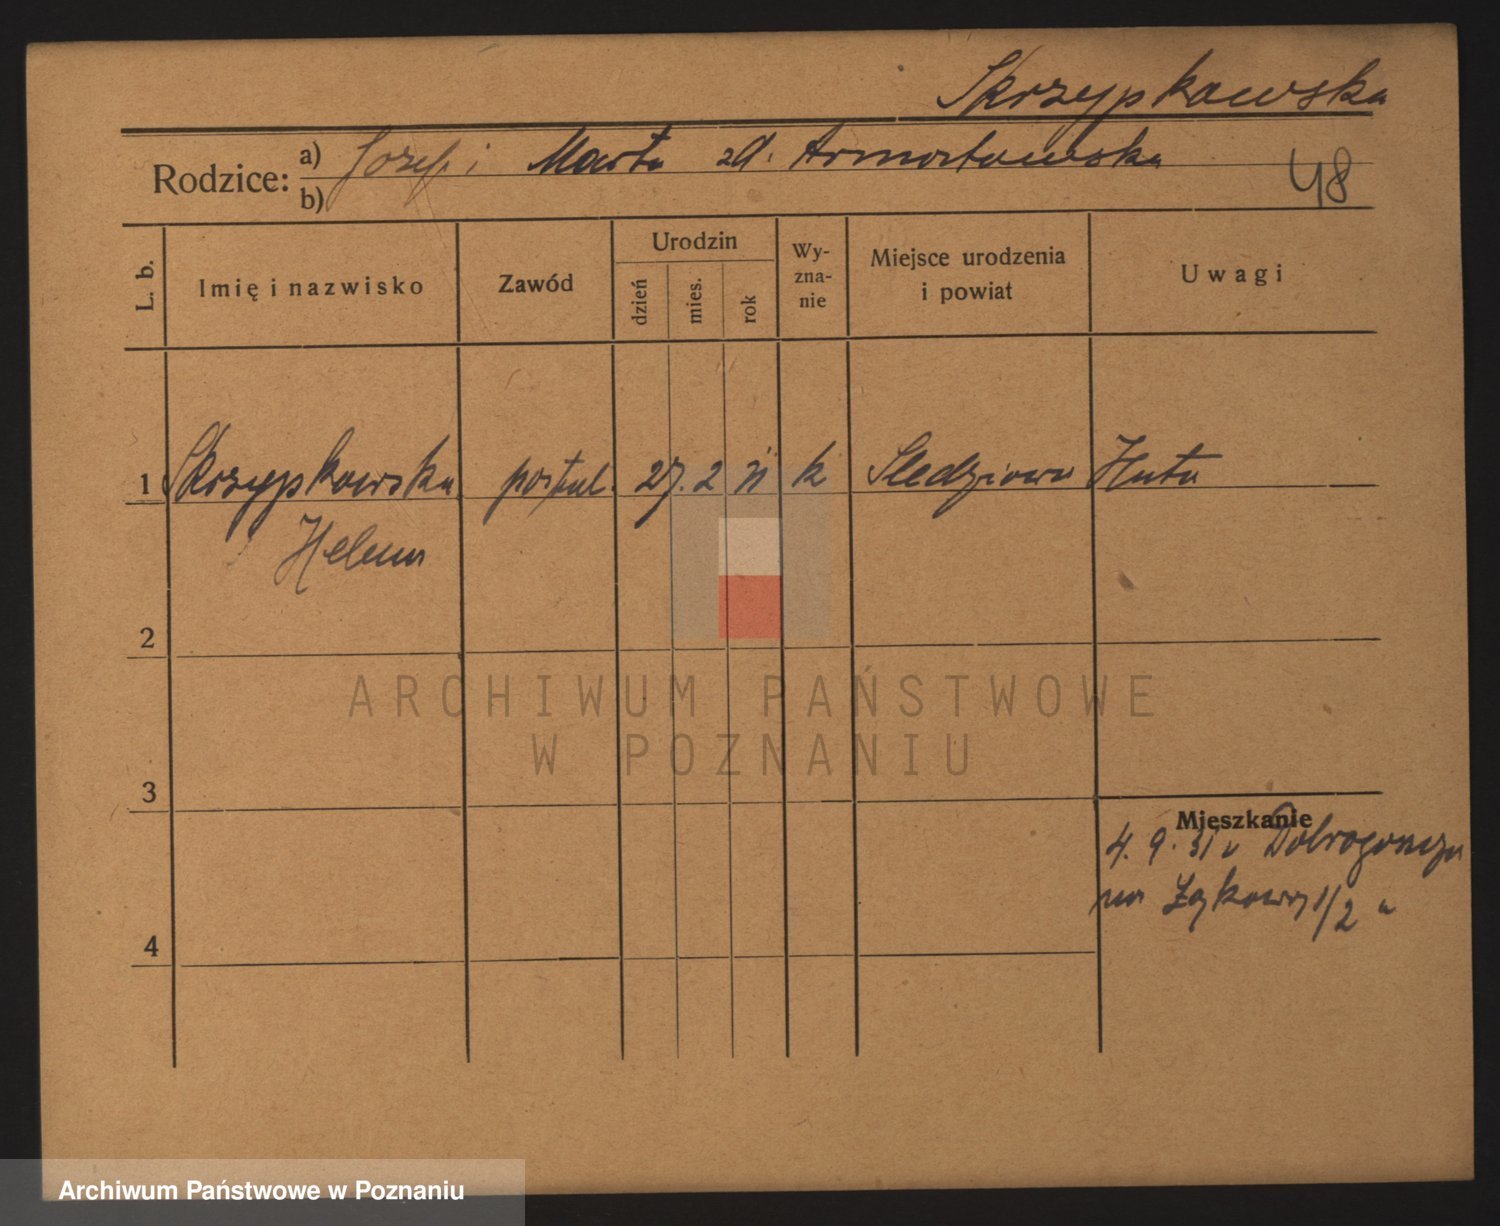 Skrzypkowska
Rodzice: a) Józef i Marta zd. Armortowska
b)
48
L. b. Imię i nazwisko Zawód Urodzin dzień mies. rok Wy-zna-nie Miejsce urodzenia i powiat Uwagi
1 Skrzypkowska postul. 27. 2 11 k Śledziowa Huta
Helena
2
ARCHIWUM PAŃSTWOWE
W POZNANIU
3
Mieszkanie
4. 9. 31 z
na 1/2
4
Archiwum Państwowe w Poznaniu